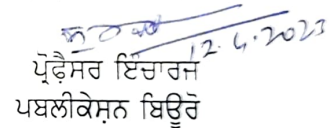 12.4.2023
ਪ੍ਰੋਫ਼ੈਸਰ ਇੰਚਾਰਜ
ਪਬਲੀਕੇਸ਼ਨ ਬਿਊਰੋ